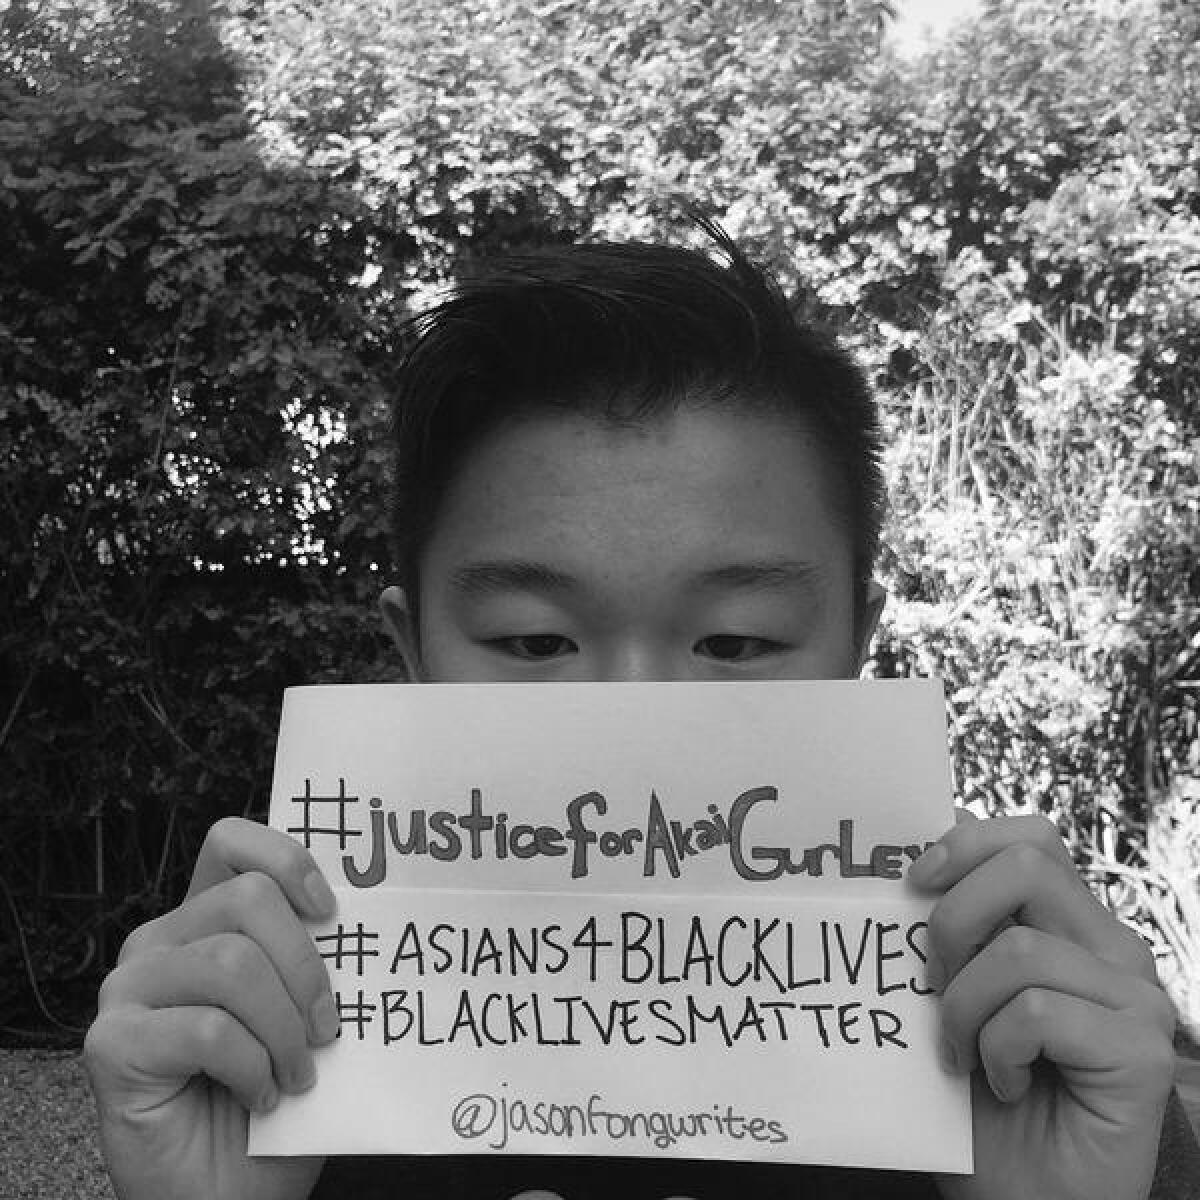 #justiceforAkaiGurLey
#ASIANS4BLACKLIVES
#BLACKLIVESMATTER
@jasonfongwrites